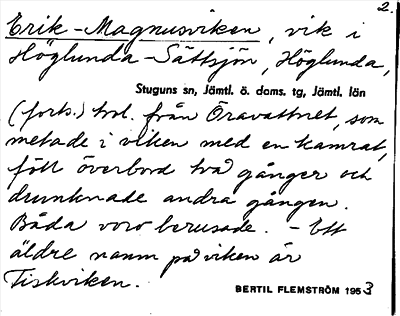 2.
Erik-Magnusviken, vik i
Höglunda-Sättsjön, Höglunda,
Stuguns sn, Jämtl. ö. doms. tg, Jämtl. län
(forts.) trol. från Öravattnet, som
metade i viken med en kamrat,
föll överbord två gånger och
drunknade andra gången.
Båda voro berusade. - Ett
äldre namn på viken är
Tiskviken.
BERTIL FLEMSTRÖM 1953